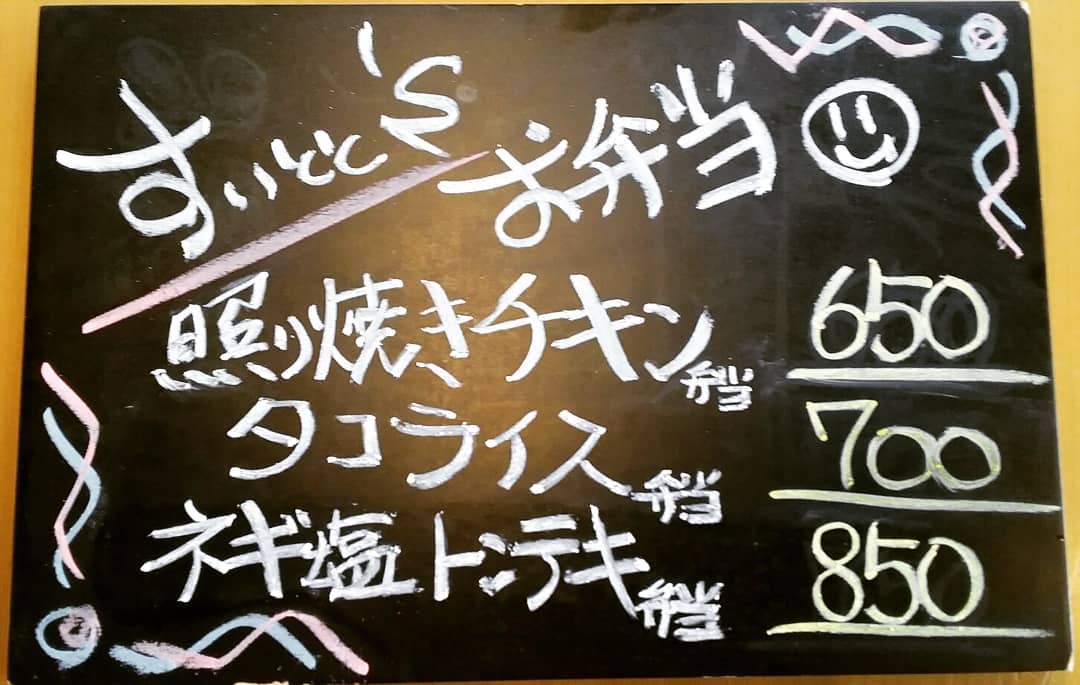 すいとと'S
お弁当
照り焼きチキン弁当 650
タコライス弁当 700
ネギ塩トンテキ弁当 850